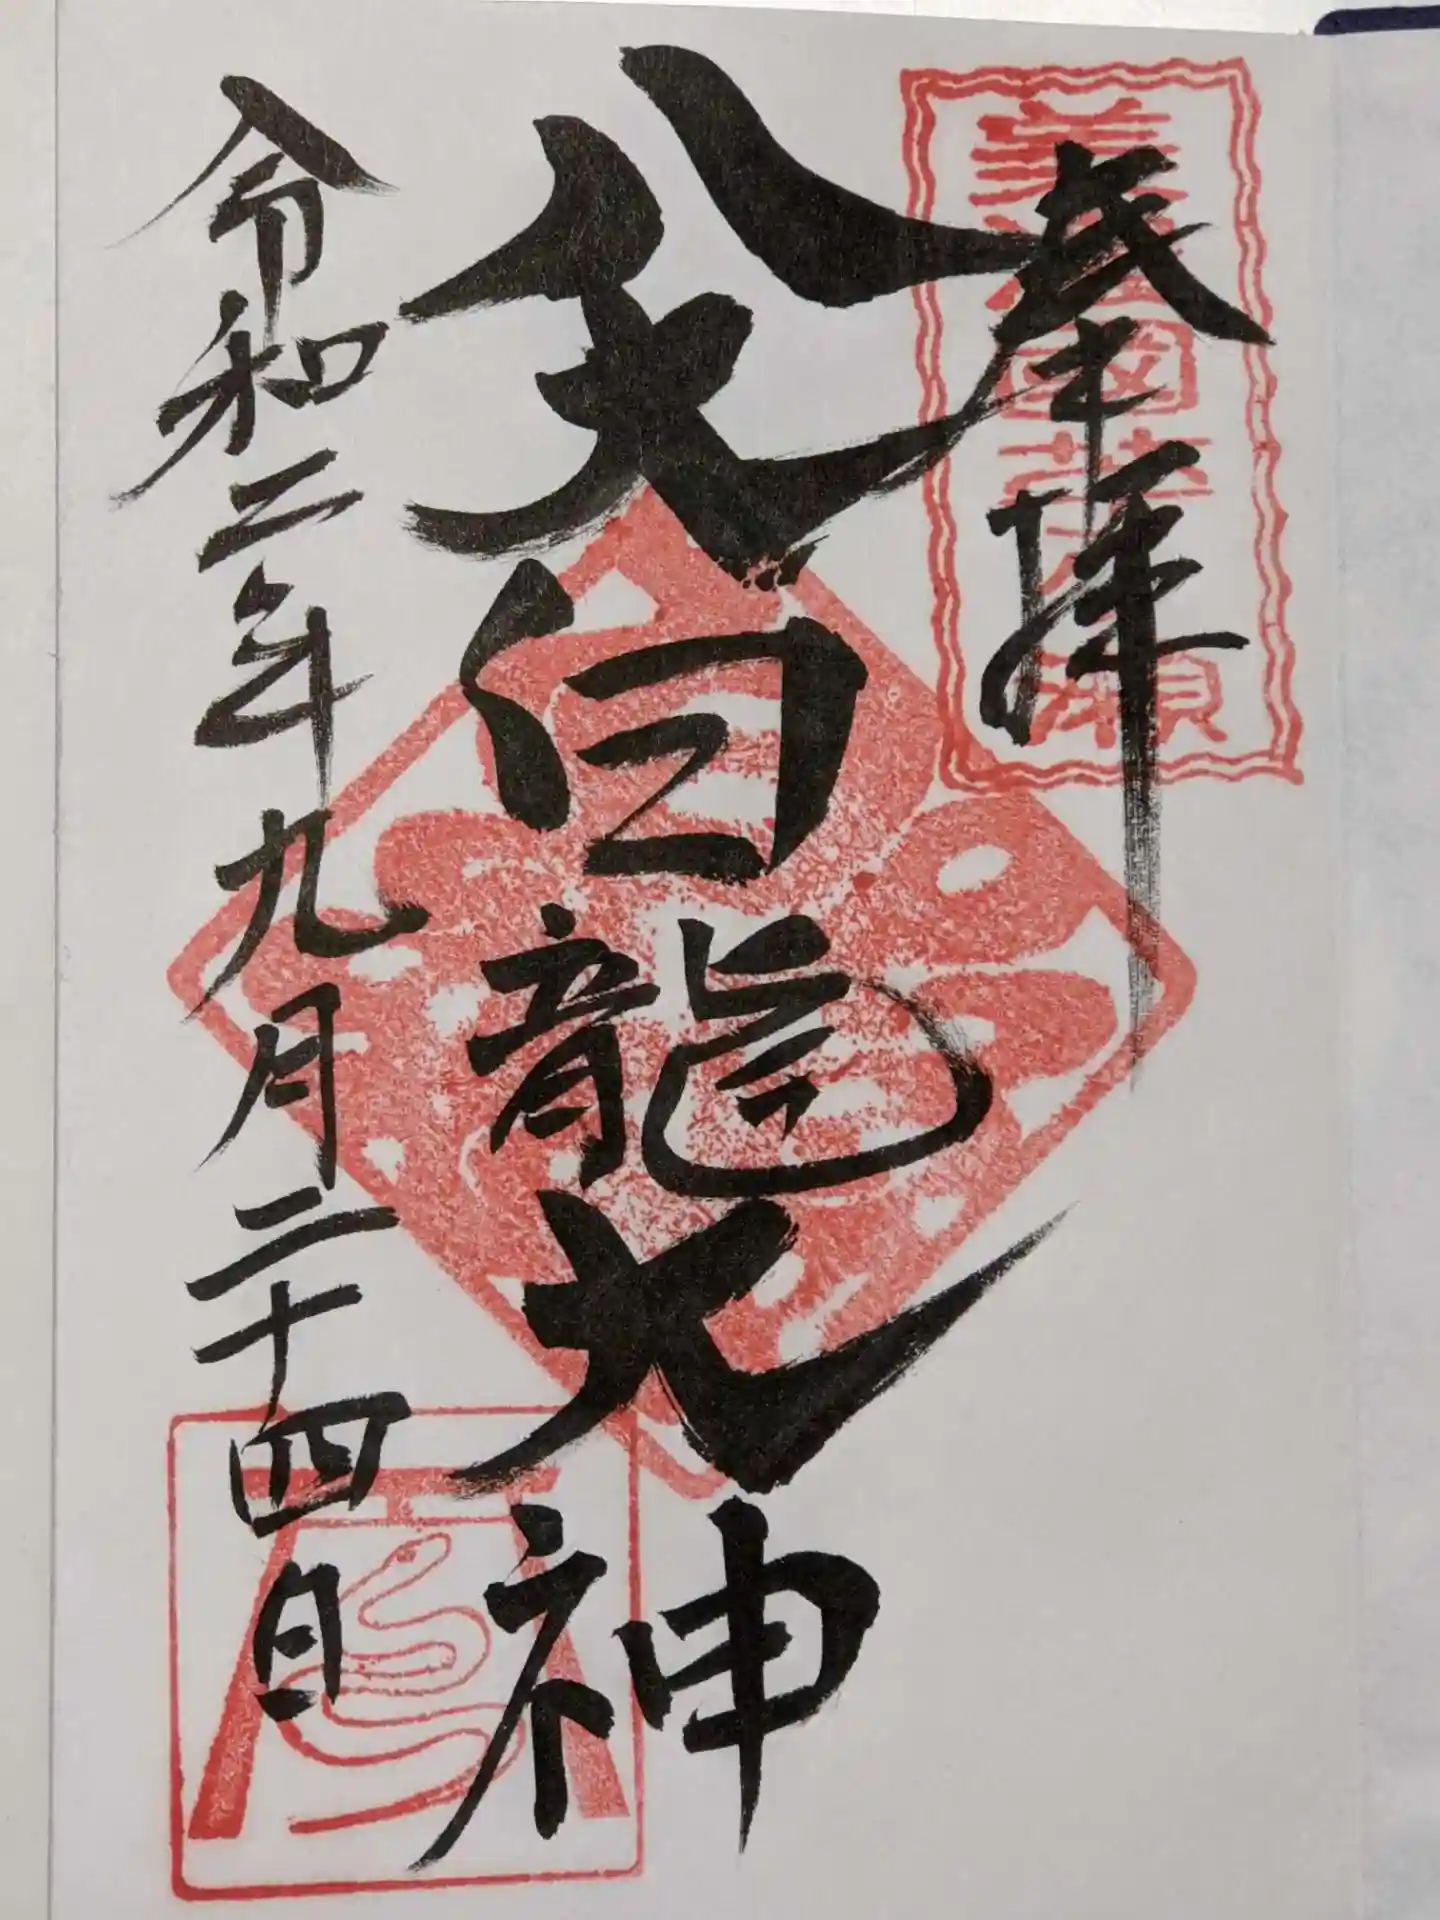 奉拝
八大白龍大神
令和二年九月二十四日